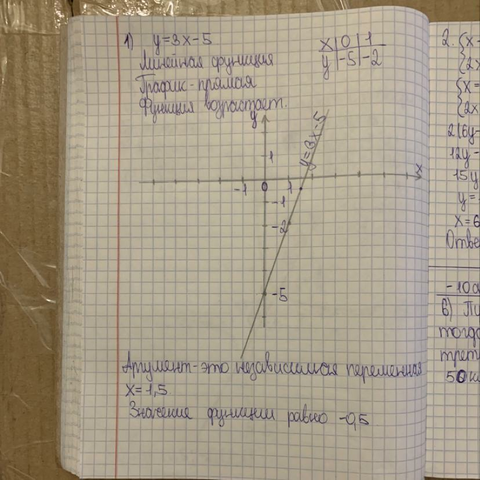 1) y=3x-5
Линейная функция
График - прямая
Функция возрастает.
x | 0 | 1
y | -5 | -2
y
1
y=3x-5
x
-1 0 1
-1
-2
-5
Аргумент - это независимая переменная
x=1,5
Значение функции равно -0,5
2. {x-
{2x
{x=
{2x
2(6y-
12y-
15y
y=
x=6
Отве
-10
6) Пу
тогда
трет
50 к